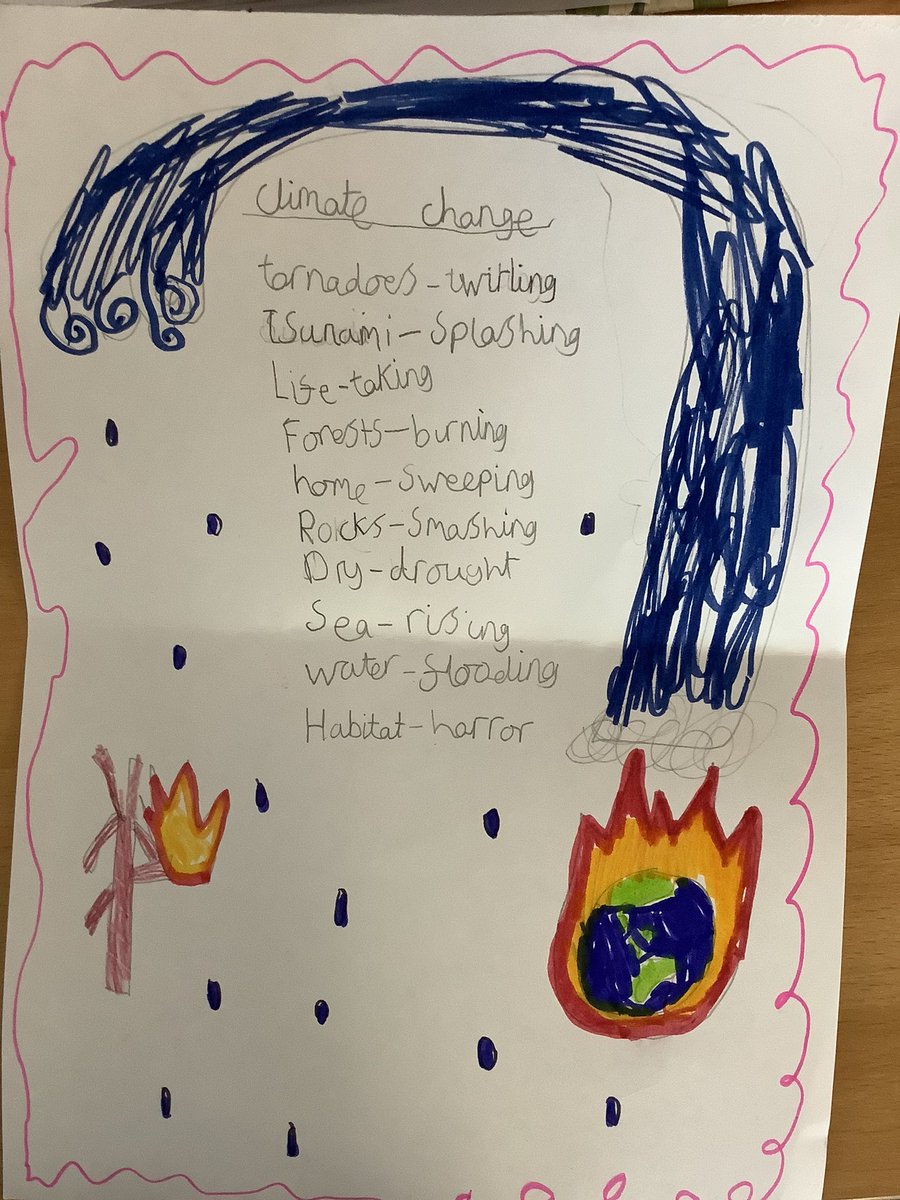 Climate change
tornadoes - twirling
Tsunami - Splashing
Life - taking
Forests - burning
home - Sweeping
Rocks - Smashing
Dry - drought
Sea - rising
water - flooding
Habitat - harror